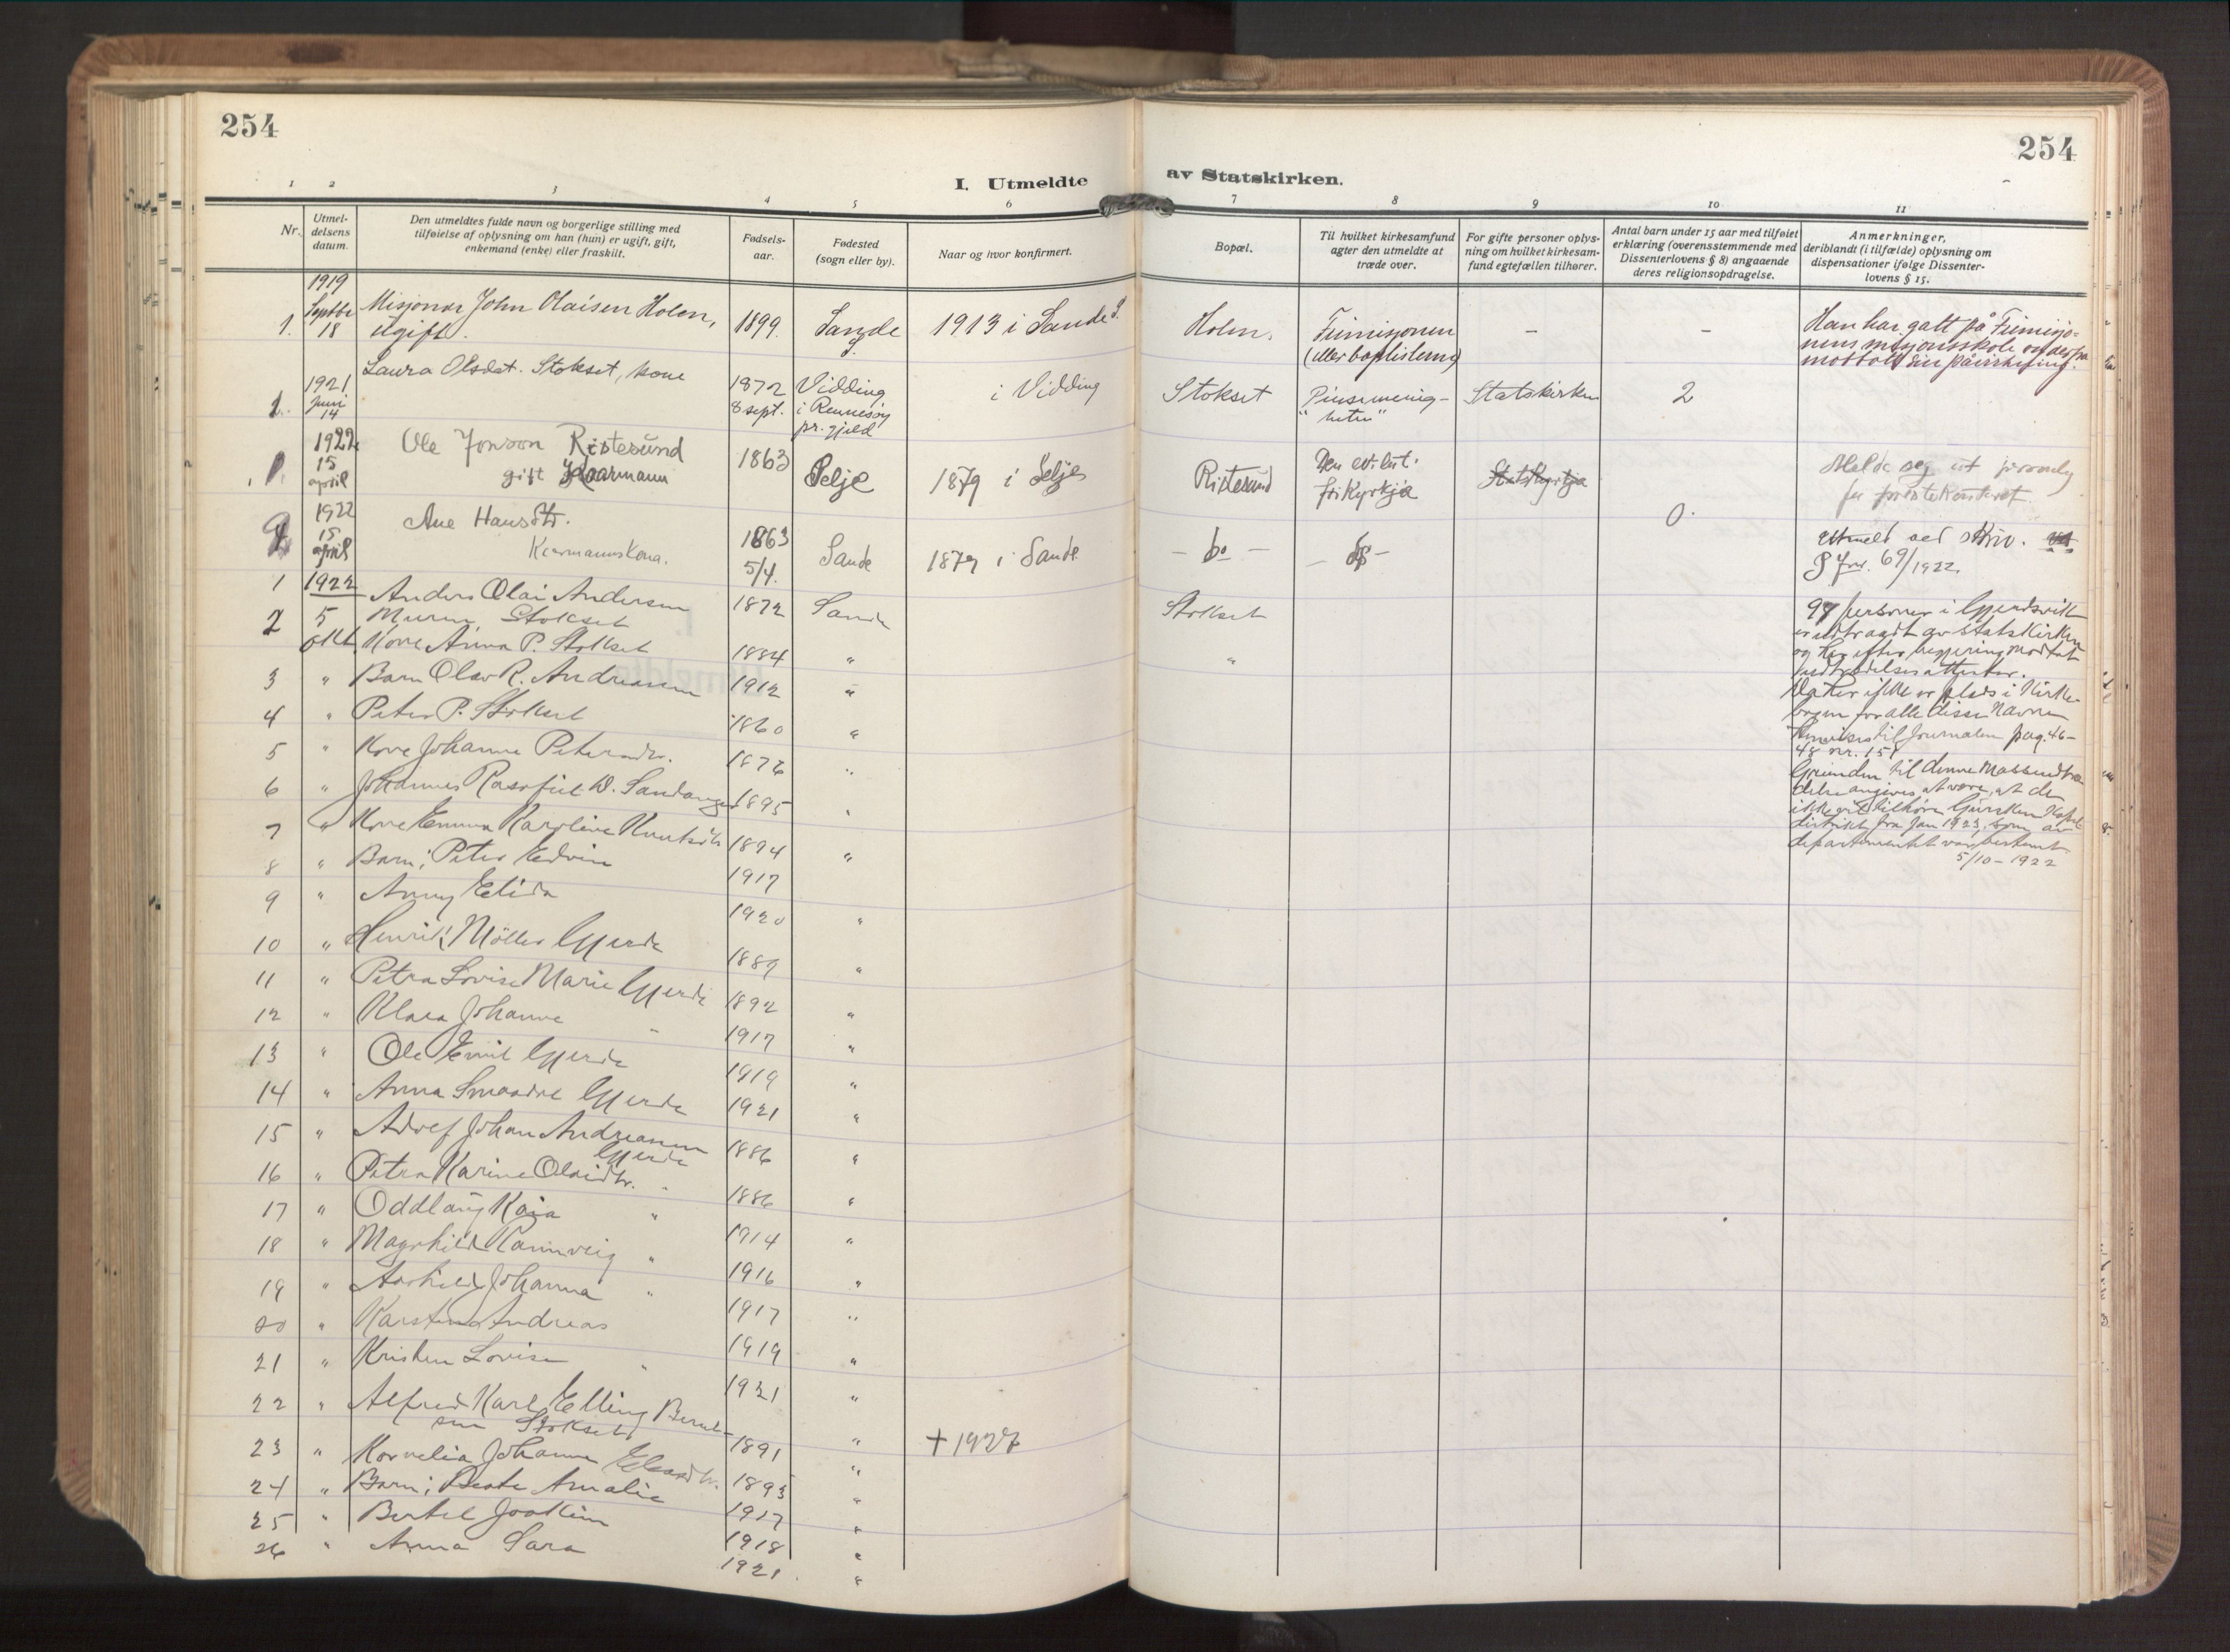 254
254
I. Utmeldte av Statskirken.
1 2 3 4 5 6 7 8 9 10 11
Nr.
Utmel-
delsens
datum.
Den utmeldtes fulde navn og borgerlige stilling med
tilføielse af oplysning om han (hun) er ugift, gift,
enkemand (enke) eller fraskilt.
Fødsels-
aar.
Fødested
(sogn eller by).
Naar og hvor konfirmert.
Bopæl.
Til hvilket kirkesamfund
agter den utmeldte at
træde over.
For gifte personer oplys-
ning om hvilket kirkesam-
fund egtefællen tilhører.
Antal barn under 15 aar med tilføiet
erklæring (overensstemmende med
Dissenterlovens § 8) angaaende
deres religionsopdragelse.
Anmerkninger,
deriblandt (i tilfælde) oplysning om
dispensationer ifølge Dissenter-
lovens § 15.
1919
1. Septbr 18 Misjonær John Olaisen Holen, ugift. 1899. Sande 1913 i Sande Holen. Frimisjonen (eller baptisterne) – –
Han har gått på Frimisjo-
nens misjonsskole og der
mottatt sin påvirkning.
1921 juni 14 Laura Olsdat. Stokset, kone 1872 8 sept. Vidding i Rennesøy pr. gjeld i Vidding Stokset Pinsemenig- "heten" Statskirken 2
1922 15 april Ole Jonson Ristesund gift Kaarmann 1863 Selje 1879 i Selje Ristesund Den ev. lut. frikyrkja Statskyrkja
Melde seg ut personleg
1922 15 april Ane Hansdtr. Kaarmannskona. 1863 5/4. Sande 1879 i Sande – do – – do – 0.
Utmeldt ved skriv.
Jnr. 69/1922.
1 1922 Anders Olai Andersen 1872 Sande Stokset
Murer, Stokset
2 5 okt. Kone Anna P. Stokset 1884 " "
3 " Barn Olav R. Andreassen 1912 "
4 " Peter P. Stokset 1860 "
5 " Kone Johanne Petersdtr. 1876 "
6 " Johannes Rasofiel D. Sandanger 1895 "
7 " Kone Emma Karoline Knutsdtr 1894 "
8 " Barn; Peter Edvin 1917
9 " Anny Elida 1920 "
10 " Henrik Møller Gjerde 1889 "
11 " Petra Lovise Marie Gjerde 1892 "
12 " Klara Johanne " 1917 "
13 " Ole Emil Gjerde 1919 "
14 " Anna Smaadal Gjerde 1921 "
15 " Adolf Johan Andreassen Gjerde 1886 "
16 " Petra Karine Olaidtr. " 1886 "
17 " Oddlaug Kaia " 1914 "
18 " Magnhild Rannveig " 1916 "
19 " Aashild Johanna " 1917 "
20 " Karsten Andreas 1919 "
21 " Kristen Lovise " 1921 "
22 " Alfred Karl Elling Bernt-
sen Stokset 1891 " + 1927
23 " Kornelia Johanne 1893 "
24 " Barn; Beate Amalie 1917 "
25 " Bertel Joakim 1918 "
26 " Anna Sara 1921. "
97 personer i Gjerdsvik
er utraadt av statskirken
og har efter begjæring mottat
udtrædelsesattester.
Da her ikke er plads i Kirke-
bogen for alle disse Navne
henvises til Journalen pag. 46-
48 nr. 151
Grunden til denne Masseudtræ-
delse angives at være, at de
ikke vil tilhøre Gursken Kapel-
distrikt fra Jan 1923, som av
departementet var bestemt
5/10 – 1922